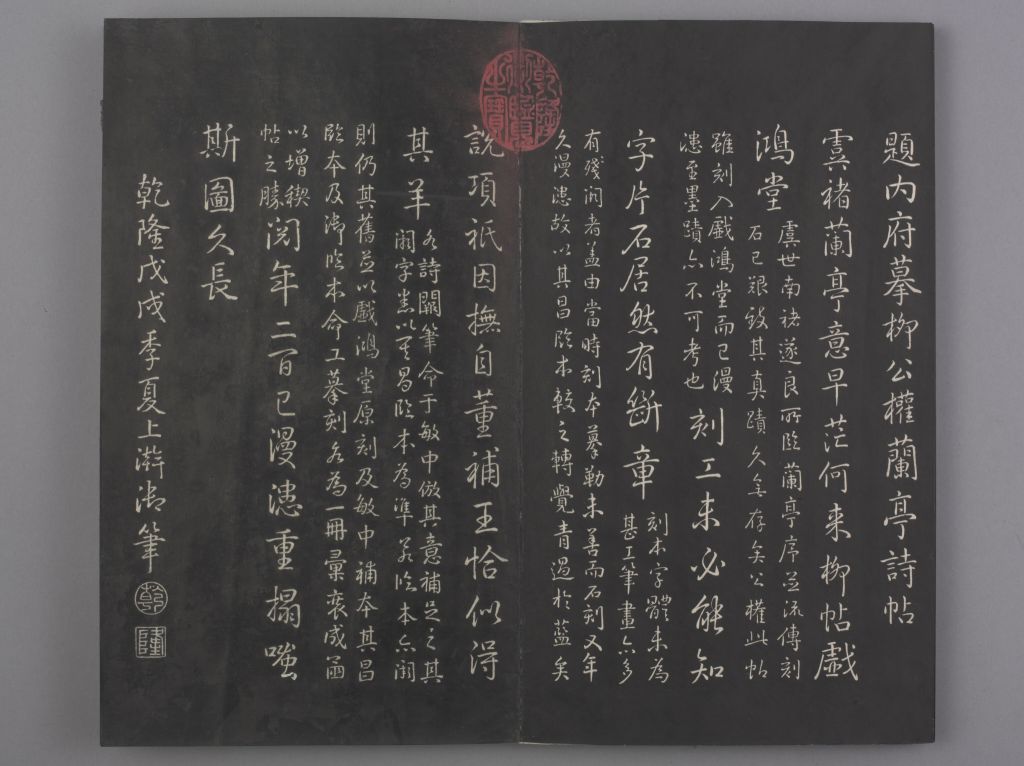 題內府摹柳公權蘭亭詩帖
虞褚蘭亭意早茫何来柳帖戲
鴻堂
虞世南褚遂良所臨蘭亭序並流傳刻
石已艱致其真蹟久無存矣公權此帖
雖刻入戲鴻堂而已漫
漶至墨蹟亦不可考也
刻工未必能知
字片石居然有斷章
刻本字體未為
甚工筆畫亦多
有殘闕者蓋由當時刻本摹勒未善而石刻又年
久漫漶故以其昌臨本較之轉覺青過於藍矣
說項祇因撫自董補王恰似得
其羊
各詩闕筆命于敏中倣其意補足之其
闕字悉以其昌臨本為準若臨本亦闕
則仍其舊並以戲鴻堂原刻及敏中補本其昌
臨本及御臨本命工摹刻各為一冊彙裒成函
以增稧
帖之勝
閱年二百已漫漶重搨嗤
斯圖久長
乾隆戊戌季夏上澣御筆
乾
隆
乾隆御覽之寶